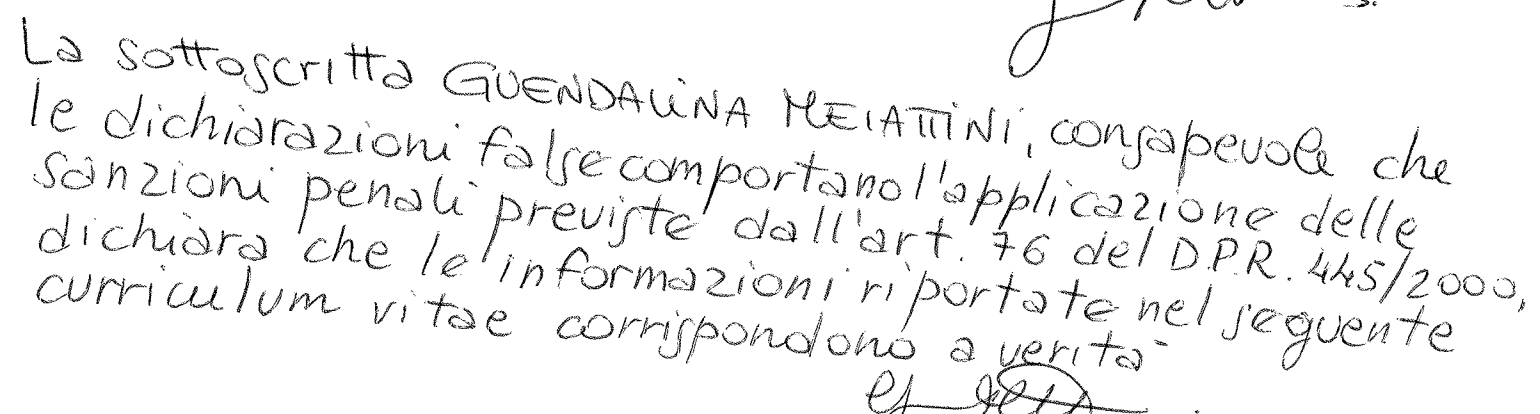 La sottoscritta GUENDALINA MEIATTINI, consapevole che
le dichiarazioni false comportano l'applicazione delle
sanzioni penali previste dall'art. 76 del D.P.R. 445/2000,
dichiara che le informazioni riportate nel seguente
curriculum vitae corrispondono a verità